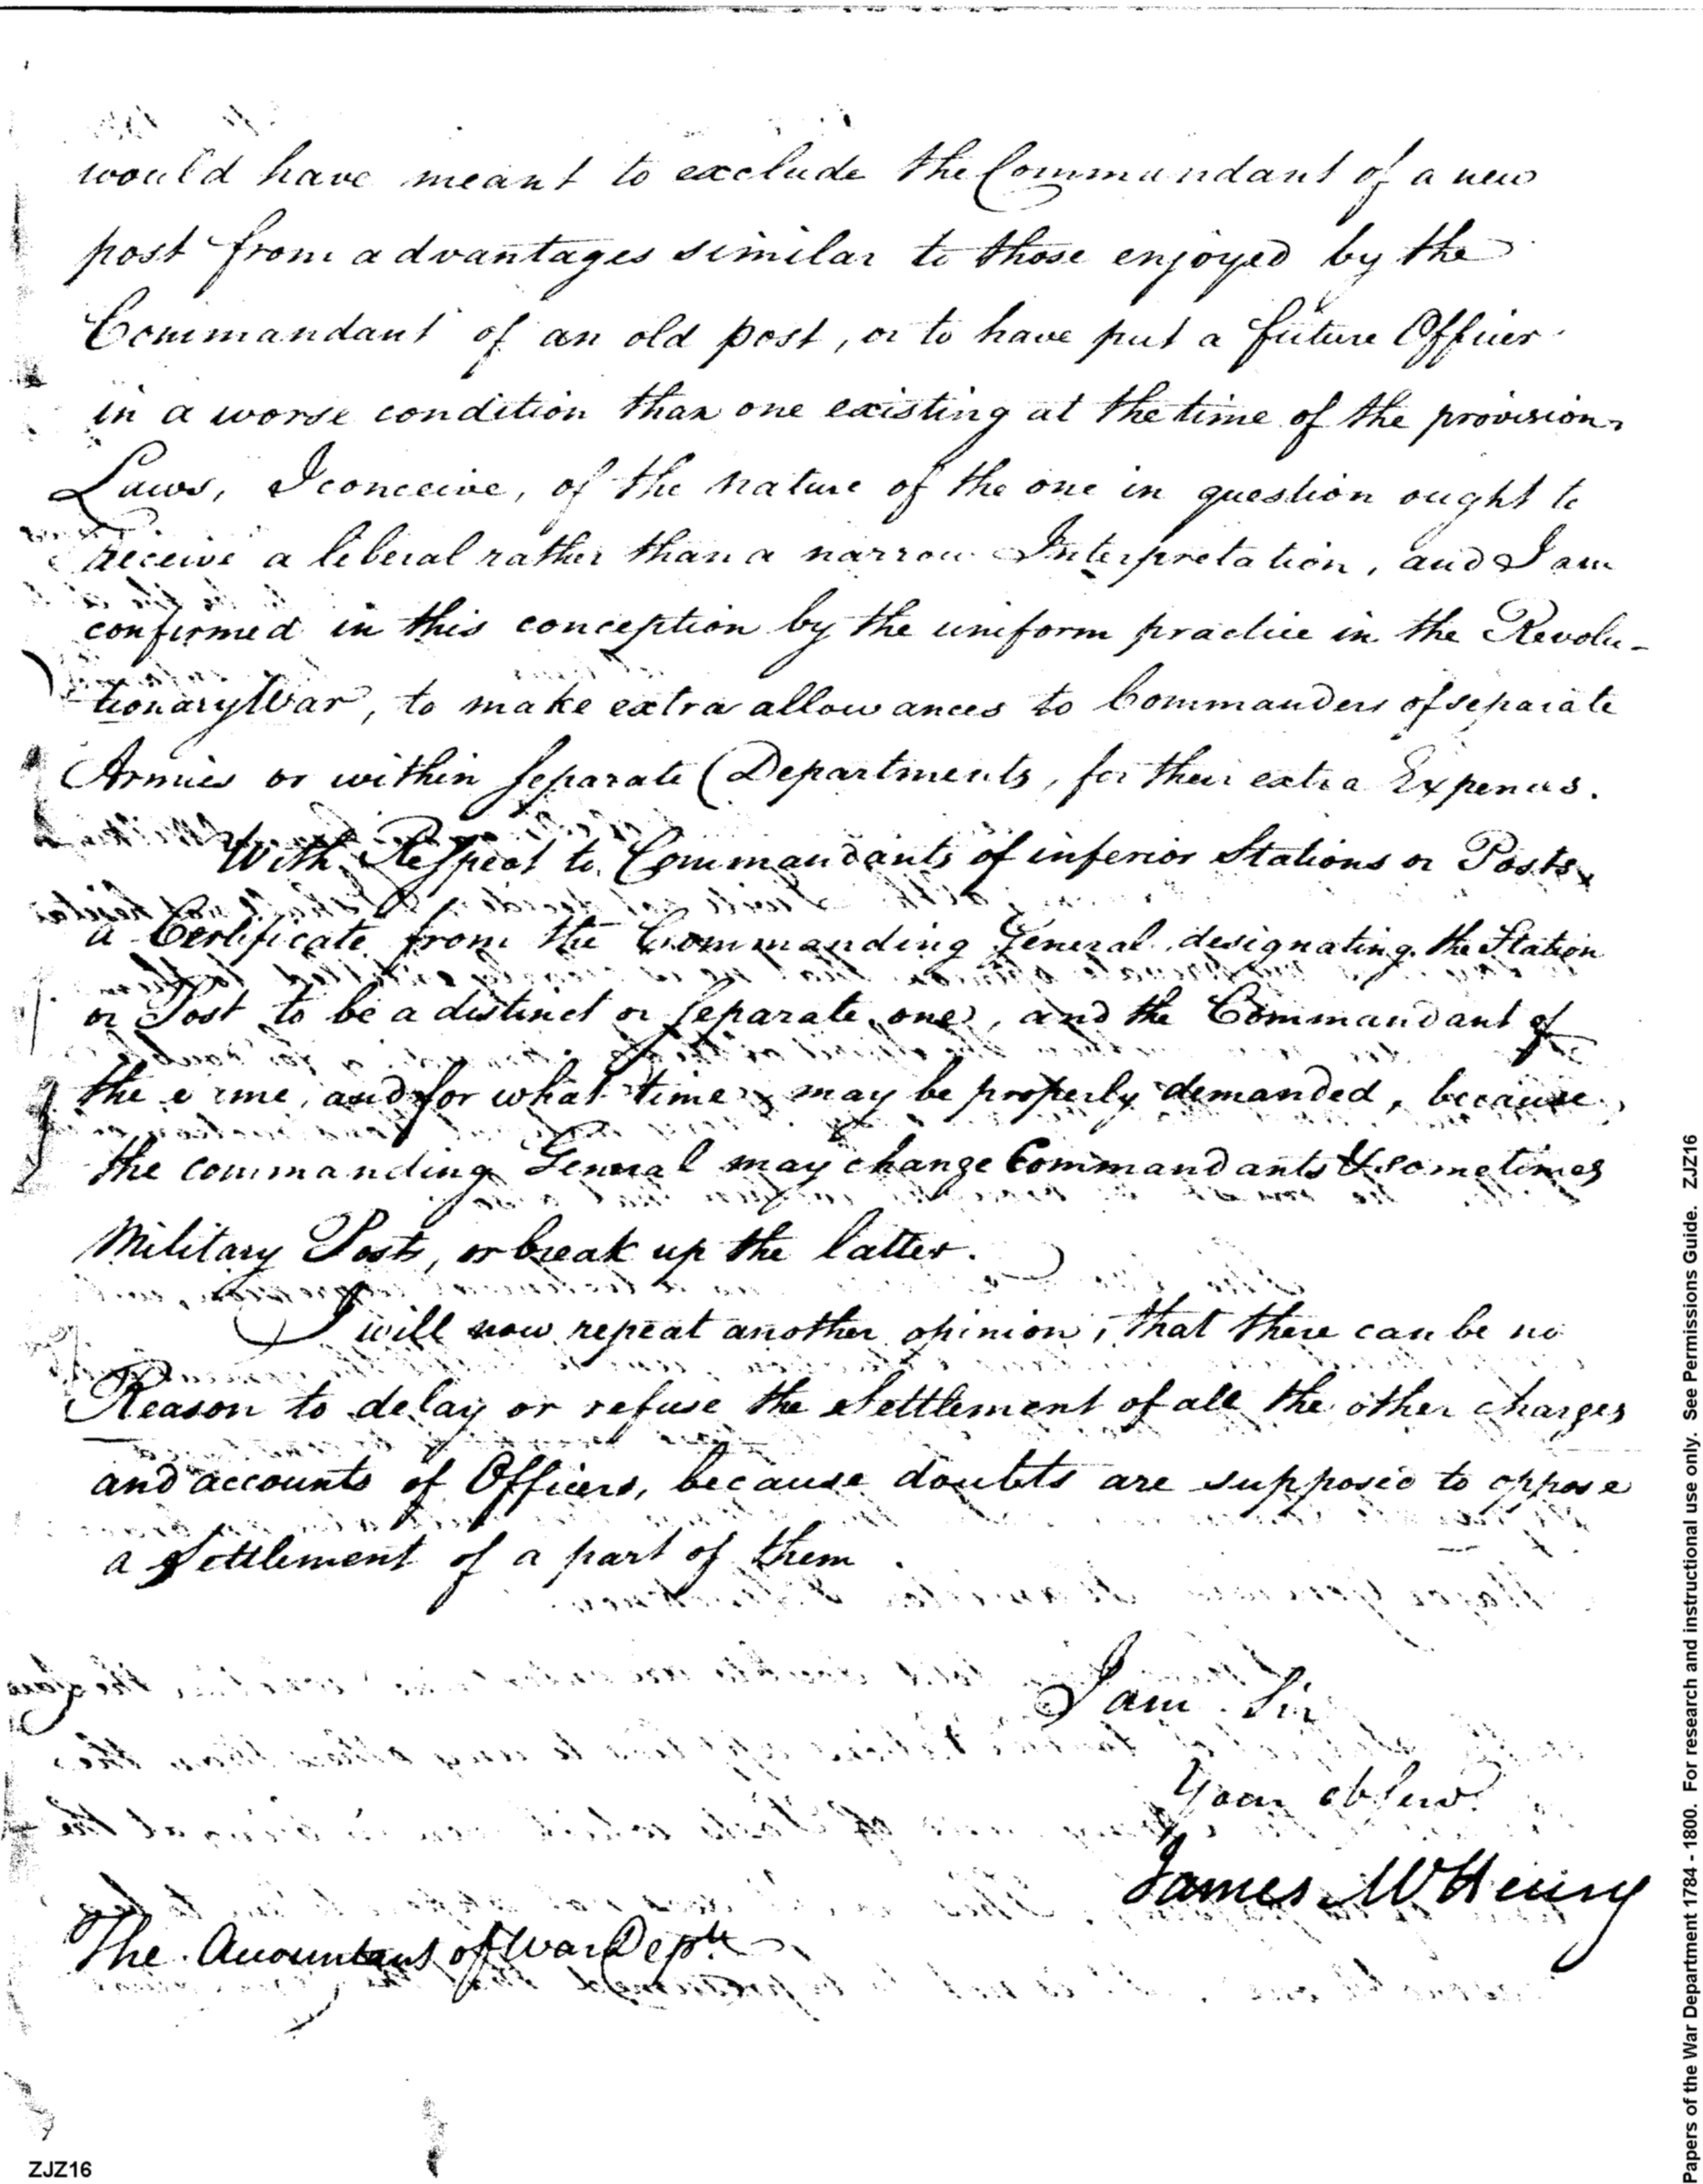 would have meant to exclude the Commandant of a new
post from advantages similar to those enjoyed by the
Commandant of an old post, or to have put a future Officer
in a worse condition than one existing at the time of the provision.
Laws, I conceive, of the nature of the one in question ought to
receive a liberal rather than a narrow Interpretation, and I am
confirmed in this conception by the uniform practice in the Revolu-
tionary War, to make extra allowances to Commanders of separate
Armies or within separate Departments, for their extra Expences.
With Respect to Commandants of inferior Stations or Posts,
a Certificate from the Commanding General designating the Station
or Post to be a distinct or separate one, and the Commandant of
the same, and for what time, may be properly demanded, because,
the commanding General may change Commandants & sometimes
Military Posts, or break up the latter.
I will now repeat another opinion, that there can be no
Reason to delay or refuse the Settlement of all the other charges
and accounts of Officers, because doubts are supposed to oppose
a Settlement of a part of them.
I am Sir
Your ob Serv.
James McHenry
The Accountant of War Dept.
ZJZ16
Papers of the War Department 1784 - 1800. For research and instructional use only. See Permissions Guide. ZJZ16